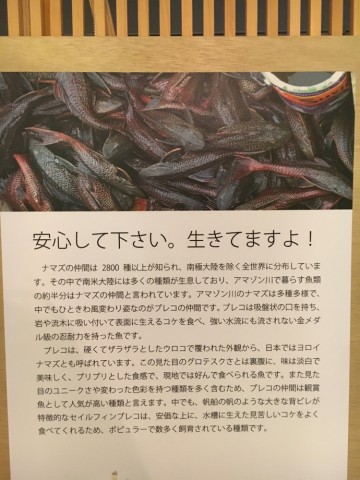 安心して下さい。生きてますよ！
ナマズの仲間は 2800 種以上が知られ、南極大陸を除く全世界に分布していま
す。その中で南米大陸には多くの種類が生息しており、アマゾン川で暮らす魚類
の約半分はナマズの仲間と言われています。アマゾン川のナマズは多種多様で、
中でもひときわ風変わり姿なのがプレコの仲間です。プレコは吸盤状の口を持ち、
岩や流木に吸い付いて表面に生えるコケを食べ、強い水流にも流されない金メダ
ル級の忍耐力を持った魚です。
プレコは、硬くてザラザラとしたウロコで覆われた外観から、日本ではヨロイ
ナマズとも呼ばれています。この見た目のグロテスクさとは裏腹に、味は淡白で
美味しく、プリプリとした食感で、現地では好んで食べられる魚です。また見た
目のユニークさや変わった色彩を持つ種類を多く含むため、プレコの仲間は観賞
魚として人気が高い種類と言えます。中でも、帆船の帆のような大きな背ビレが
特徴的なセイルフィンプレコは、安価な上に、水槽に生えた見苦しいコケをよく
食べてくれるため、ポピュラーで数多く飼育されている種類です。